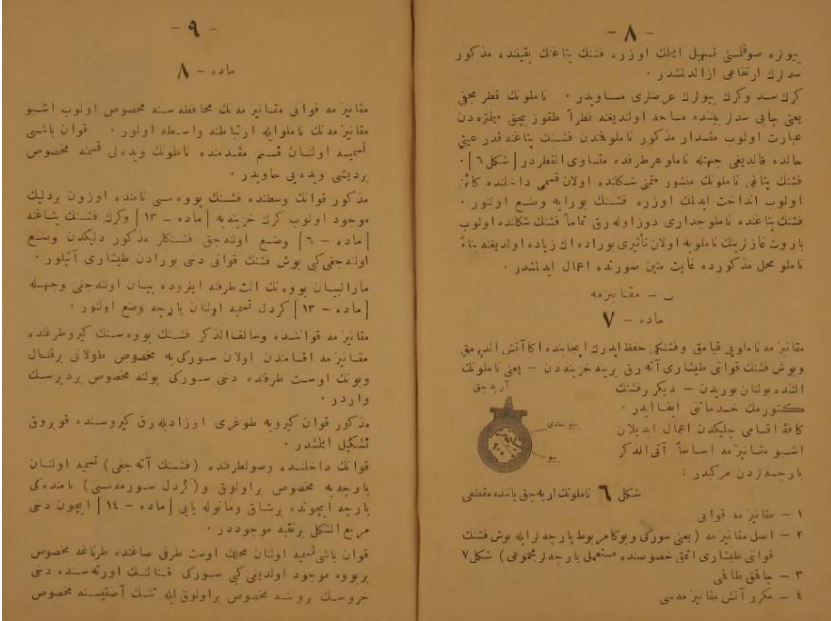 — ٨ —
يولره صوقلسنى تسهيل ايتمك اوزره فشنك يتاغنك بقيننده مذكور
سدلرك ارتفاعى ازالدلمشدر .
كرك سد وكرك يولرك عرضلرى مساويدر . ناملونك قطر مجقى
يعنى چاپى سدلر بيننده مساحه اولنديغنده نظراً طقوز بچق ميليمتره دن
عبارت اولوب مقدار مذكور ناملو مجقندن فشنك يتاغنه قدر عينى
حالده قالديغى جهتله ناملو هر طرفده متساوى القطردر [ شكل ٦ ] .
فشنك يتاغى ناملونك منشور مثمنى شكلنده اولان قسمى داخلنده كائن
اولوب انداخت ايدلمك اوزره فشنك بورايه وضع اولنور .
فشنك يتاغنده ناملو جدارى دوز اوله رق تماماً فشنك شكلنده اولوب
باروت غازلرينك ناملويه اولان تأثيرى بوراده اك زياده اولديغنه بناءً
ناملو محل مذكورده غايت متين صورتده اعمال ايدلمشدر .
ب — مقانيزمه
ماده — ٧
مقانيزمه ناملويى قپامق وفشنكى حفظ ايدرك ايجابنده اكا آتش الديرمق
وبوش فشنك قوانى طيشارى آته رق يرينه خزينه دن — يعنى ناملونك
التنده بولنان بوريدن — ديكر فشنك
كتورمك خدماتنى ايفا ايدر .
كافهٔ اقسامى چليكدن اعمال ايديلان
اشبو مقانيزمه اساساً آتى الذكر
پارچه لردن مركبدر :
آرپه جق
يو سدى
يو
شكل ٦ ناملونك آرپه جق ياننده مقطعى
١ — مقانيزمه قوانى
٢ — اصل مقانيزمه ( يعنى سوركى وبوكا مربوط پارچه لر ايله بوش فشنك
قوانى طيشارى اتمق خصوصنده مستعمل پارچه لر مجموعى ) شكل ٧
٣ — چاقق طاقمى
٤ — مكرر آتش مقانيزمه سى
— ٩ —
ماده — ٨
مقانيزمه قوانى مقانيزمه نك محافظه سنه مخصوص اولوب اشبو
مقانيزمه نك ناملو ايله ارتباطنه واسطه اولور . قوان باشى
تسميه اولنان قسم مقدمنده ناملونك ويده لى قسمنه مخصوص
بر ديشى ويده يى حاويدر .
مذكور قوانك وسطنده فشنك يووه سى نامنده اوزون بر دليك
موجود اولوب كرك خزينه يه [ ماده — ١٣ ] وكرك فشنك يتاغنه
[ ماده — ٦ ] وضع اولنه جق فشنكلر مذكور دليكدن وضع
اولنه جغى كبى بوش فشنك قوانى دخى بورادن طيشارى آتيلور .
مار البيان يووه نك الت طرفنه ايلروده بيان اولنه جغى وجهله
[ ماده — ١٣ ] كردل تسميه اولنان پارچه وضع اولنور .
مقانيزمه قواننده وسالف الذكر فشنك يووه سنك كيرو طرفنده
مقانيزمه اقسامندن اولان سوركى يه مخصوص طولانى بر قنال
وبونك اوست طرفنده دخى سوركى يولنه مخصوص بر ديرسك
واردر .
مذكور قوان كيرويه طوغرى اوزاديله رق كيروسنده قويروق
تشكيل ايلمشدر .
قوانك داخلنده وصول طرفنده ( فشنك آته جغى ) تسميه اولنان
پارچه يه مخصوص بر اولوق و ( كردل سورمه سى ) نامنده كى
پارچه ايچونده بر شاق ومانوله يايى [ ماده — ١٤ ] ايچون دخى
مربع الشكل بر ثقبه موجوددر .
قوان باشى تسميه اولنان محلك اوست طرفى صاغنده طرناغه مخصوص
بر يووه موجود اولديغى كبى سوركى قنالنك اورته سنده دخى
خروسك بروننه مخصوص بر اولوق ايله تتك آصقيسنه مخصوص